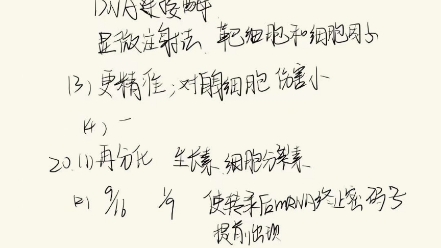 DNA连接酶
显微注射法 靶细胞和细胞因子
(3) 更精准；对正常细胞伤害小
(4) 一
20.(1) 再分化 生长素、细胞分裂素
(2) 9/16 1/9 使转录后mRNA终止密码子
提前出现